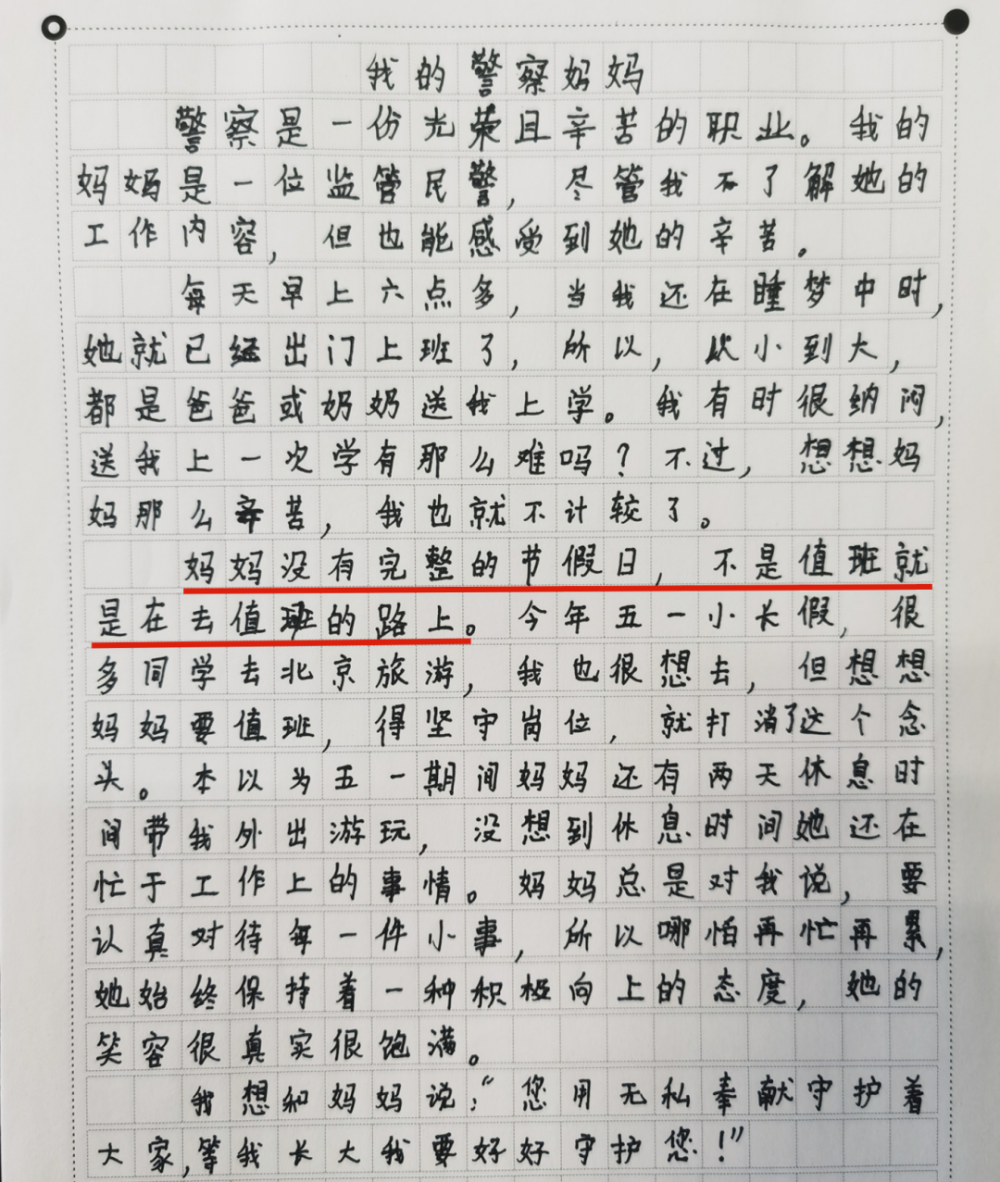 我的警察妈妈
警察是一份光荣且辛苦的职业。我的
妈妈是一位监管民警，尽管我不了解她的
工作内容，但也能感受到她的辛苦。
每天早上六点多，当我还在睡梦中时，
她就已经出门上班了，所以，从小到大，
都是爸爸或奶奶送我上学。我有时很纳闷，
送我上一次学有那么难吗？不过，想想妈
妈那么辛苦，我也就不计较了。
妈妈没有完整的节假日，不是值班就
是在去值班的路上。今年五一小长假，很
多同学去北京旅游，我也很想去，但想想
妈妈要值班，得坚守岗位，就打消了这个念
头。本以为五一期间妈妈还有两天休息时
间带我外出游玩，没想到休息时间她还在
忙于工作上的事情。妈妈总是对我说，要
认真对待每一件小事，所以哪怕再忙再累，
她始终保持着一种积极向上的态度，她的
笑容很真实很饱满。
我想和妈妈说：“您用无私奉献守护着
大家，等我长大我要好好守护您！”